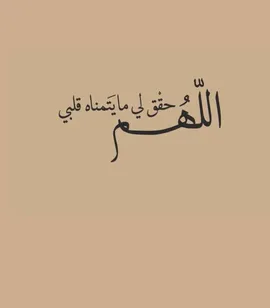 اللّهُم حقْق لي مايَتمناه قلبي